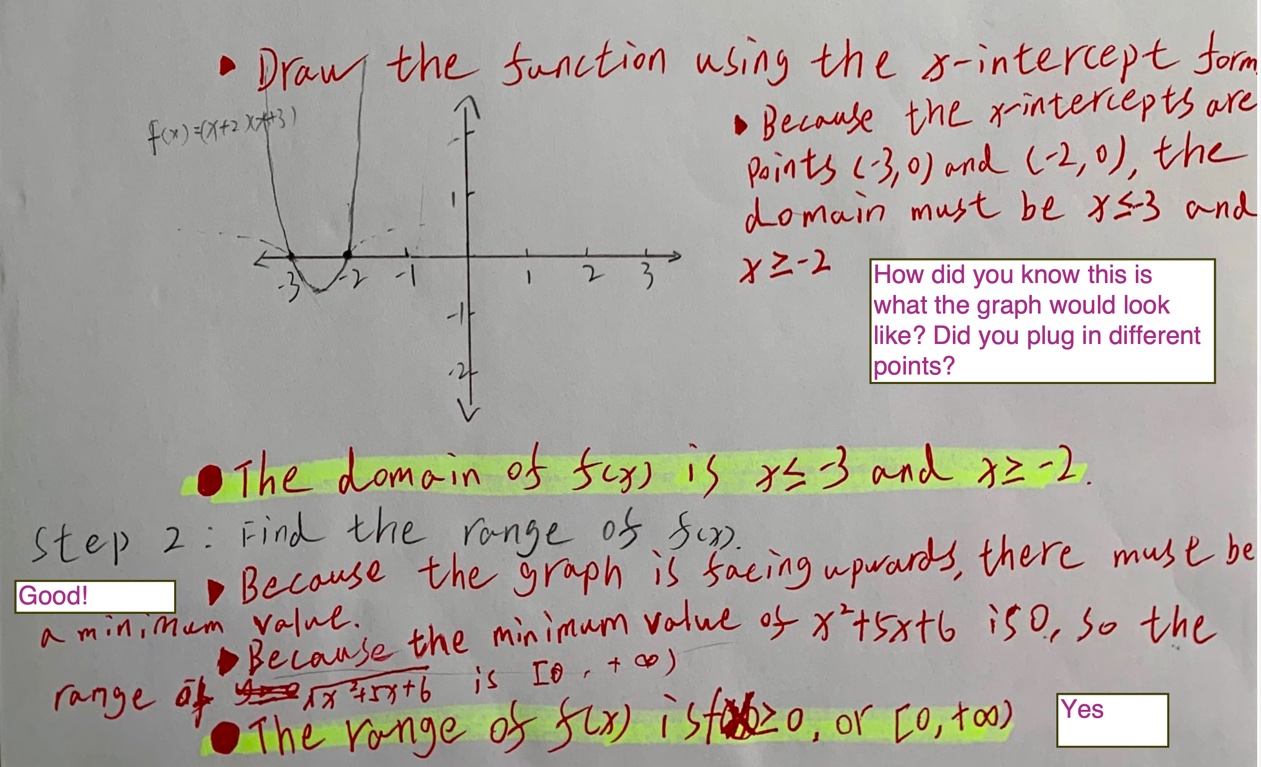 • Draw the function using the x-intercept form
f(x)=(x+2)(x+3)
• Because the x-intercepts are
points (-3,0) and (-2,0), the
domain must be x≤-3 and
x≥-2
1
-3 -2 -1 1 2 3
-1
-2
How did you know this is
what the graph would look
like? Did you plug in different
points?
• The domain of f(x) is x≤-3 and x≥-2.
Step 2: Find the range of f(x).
• Because the graph is facing upwards, there must be
Good!
a minimum value.
• Because the minimum value of x²+5x+6 is 0, so the
range of √x²+5x+6 is [0, +∞)
• The range of f(x) is ≥0, or [0,+∞)
Yes